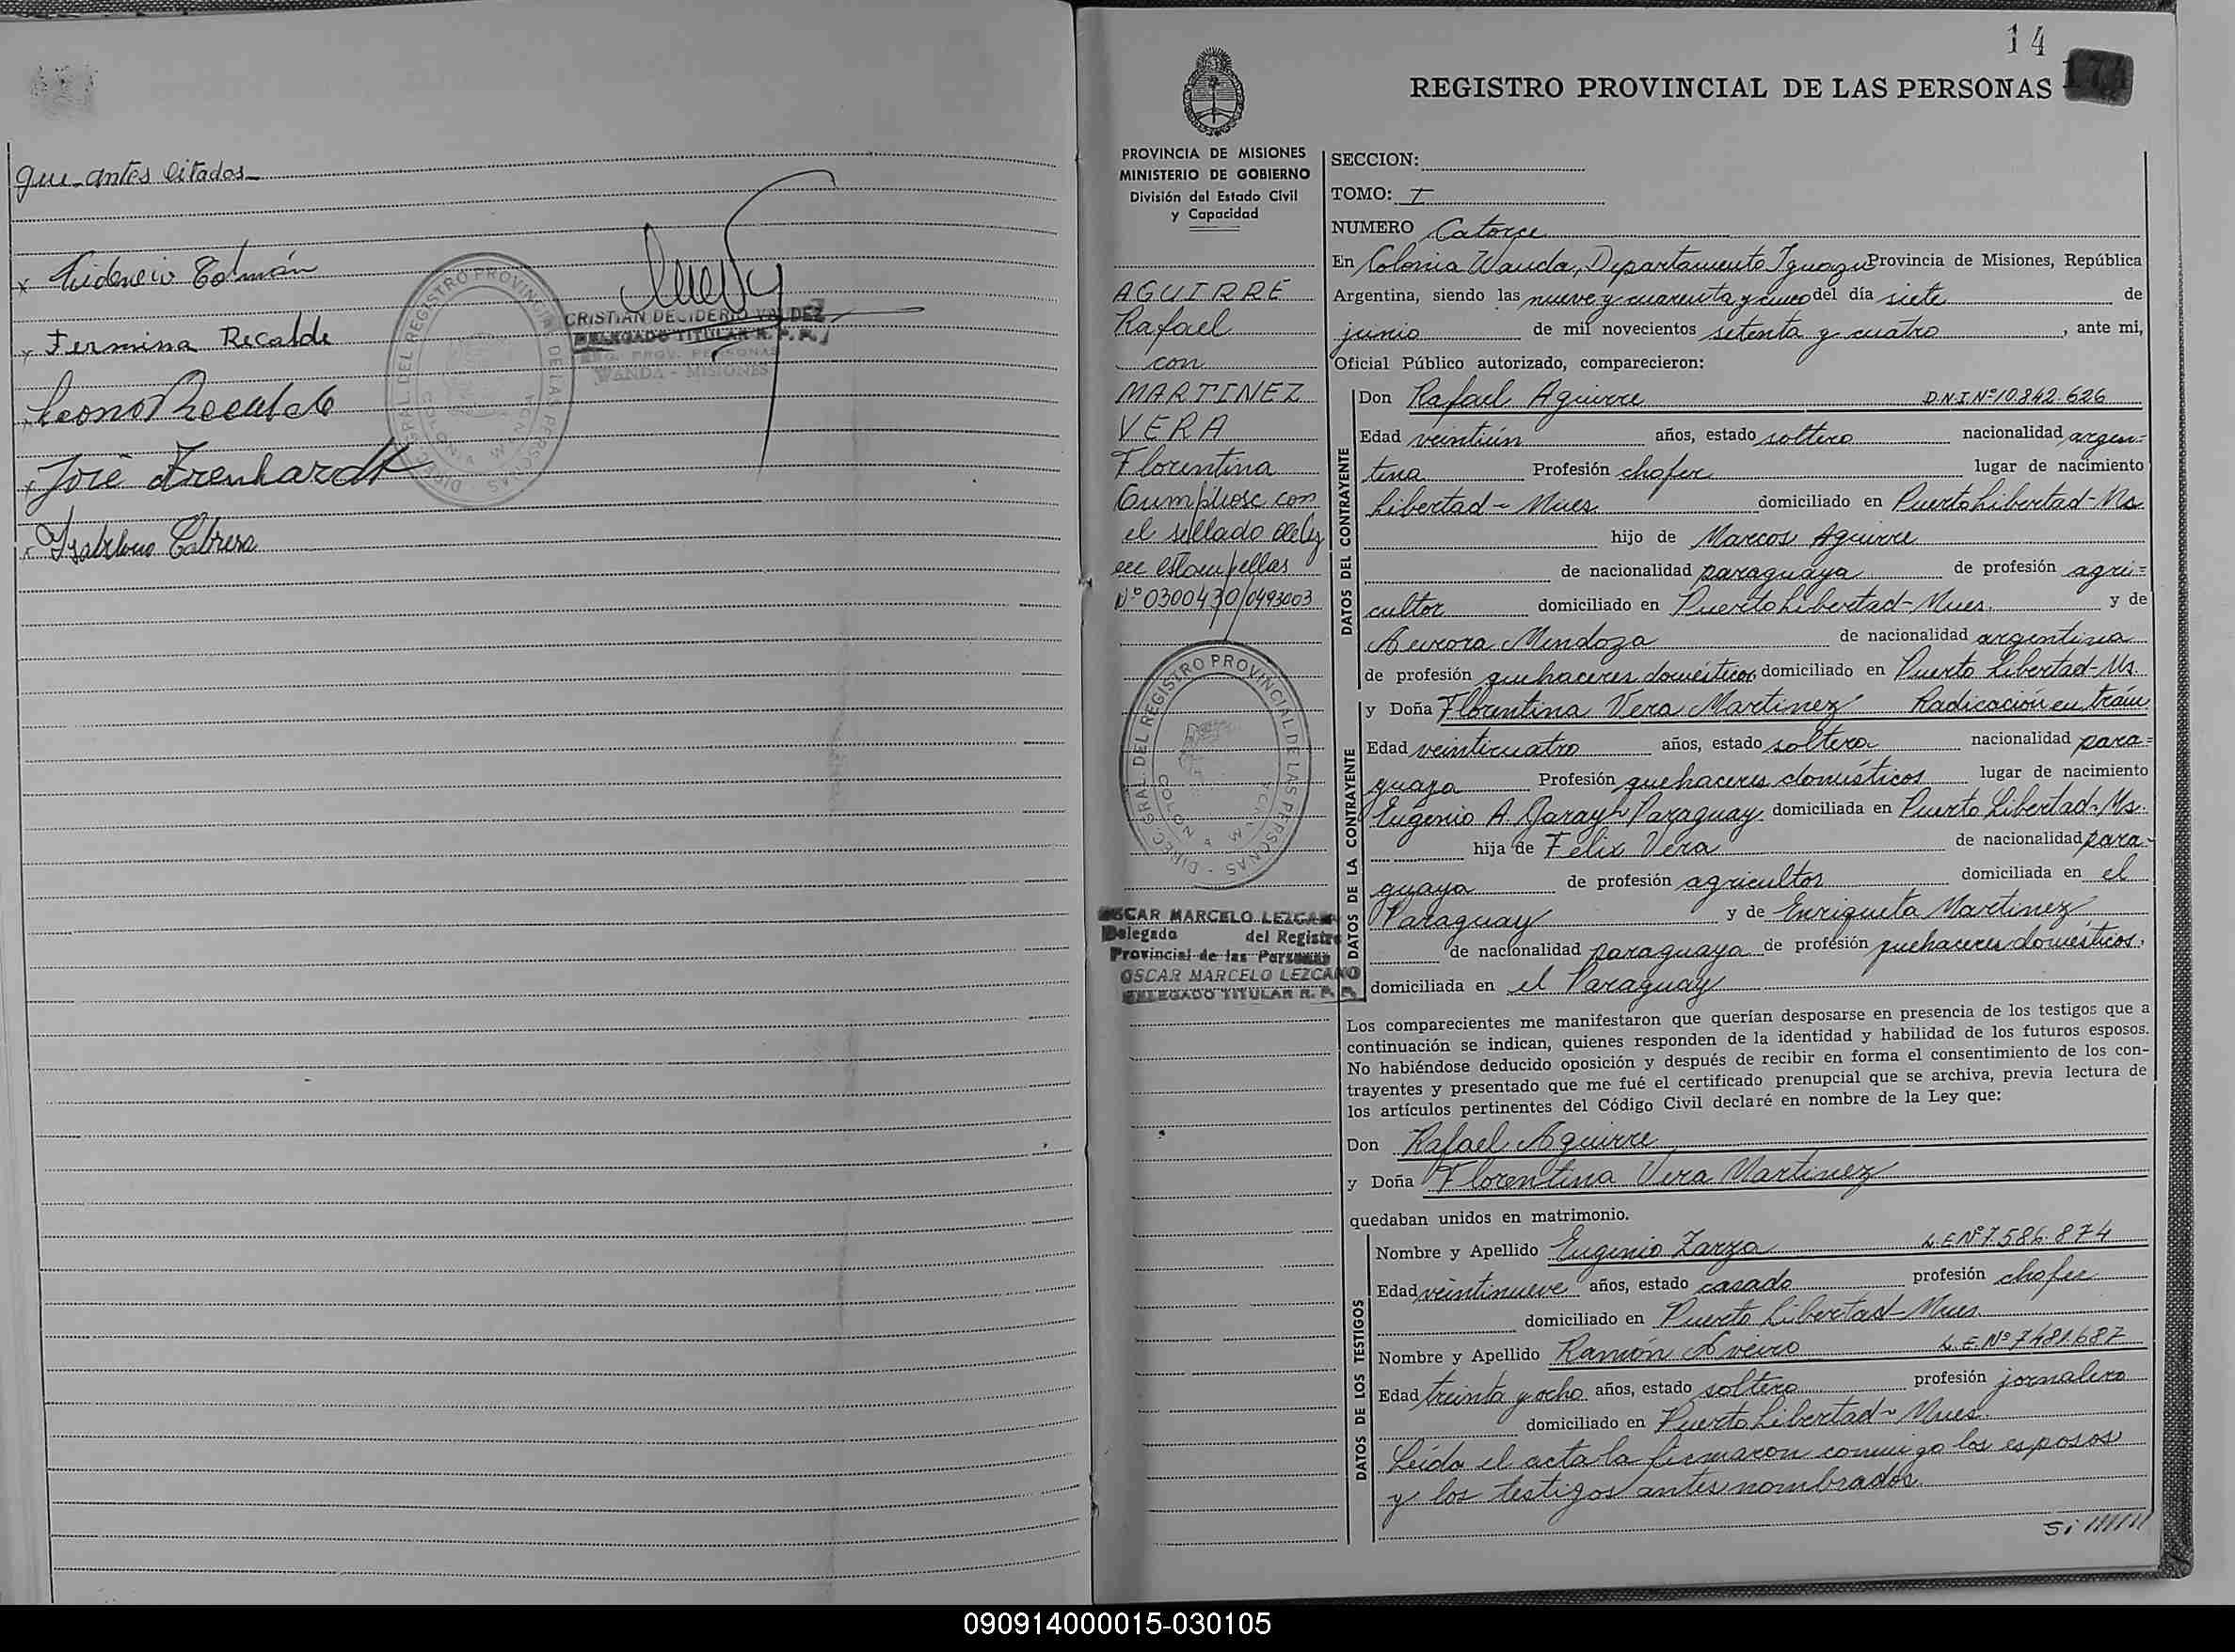 que antes citados
Fermina Recalde
José Frenhardt
Cabrera
DIREC. GRAL. DEL REGISTRO PROVINCIAL DE LAS PERSONAS
COLONIA WANDA
CRISTIAN DECIDERIO VALDEZ
DELEGADO TITULAR R. P. P.
REG. PROV. PERSONAS
WANDA - MISIONES
14
REGISTRO PROVINCIAL DE LAS PERSONAS
PROVINCIA DE MISIONES
MINISTERIO DE GOBIERNO
División del Estado Civil
y Capacidad
AGUIRRE
Rafael
con
MARTINEZ
VERA
Florentina
Cumpliose con
el sellado de ley
en estampillas
Nº 0300430/0493003
DIREC. GRAL. DEL REGISTRO PROVINCIAL DE LAS PERSONAS
COLONIA WANDA
OSCAR MARCELO LEZCANO
Delegado del Registro
Provincial de las Personas
OSCAR MARCELO LEZCANO
DELEGADO TITULAR R. P. P.
SECCION:
TOMO: I
NUMERO Catorce
En Colonia Wanda, Departamento Iguazu Provincia de Misiones, República
Argentina, siendo las nueve y cuarenta y cinco del día siete de
junio de mil novecientos setenta y cuatro, ante mi,
Oficial Público autorizado, comparecieron:
DATOS DEL CONTRAYENTE
Don Rafael Aguirre D.N.I Nº 10.842.626
Edad veintiún años, estado soltero nacionalidad argen=
tina Profesión chofer lugar de nacimiento
Libertad - Mnes domiciliado en Puerto Libertad - Ms.
hijo de Marcos Aguirre
de nacionalidad paraguaya de profesión agri=
cultor domiciliado en Puerto Libertad - Mnes. y de
Aurora Mendoza de nacionalidad argentina
de profesión quehaceres domésticos domiciliado en Puerto Libertad - Ms.
DATOS DE LA CONTRAYENTE
y Doña Florentina Vera Martinez Radicación en trám
Edad veinticuatro años, estado soltera nacionalidad para=
guaya Profesión quehaceres domésticos lugar de nacimiento
Eugenio A. Garay - Paraguay domiciliada en Puerto Libertad - Ms.
hija de Felix Vera de nacionalidad para-
guaya de profesión agricultor domiciliada en el
Paraguay y de Enriqueta Martinez
de nacionalidad paraguaya de profesión quehaceres domésticos,
domiciliada en el Paraguay
Los comparecientes me manifestaron que querían desposarse en presencia de los testigos que a
continuación se indican, quienes responden de la identidad y habilidad de los futuros esposos.
No habiéndose deducido oposición y después de recibir en forma el consentimiento de los con-
trayentes y presentado que me fué el certificado prenupcial que se archiva, previa lectura de
los artículos pertinentes del Código Civil declaré en nombre de la Ley que:
Don Rafael Aguirre
y Doña Florentina Vera Martinez
quedaban unidos en matrimonio.
DATOS DE LOS TESTIGOS
Nombre y Apellido Eugenio Zarza L.E Nº 7.586.874
Edad veintinueve años, estado casado profesión chofer
domiciliado en Puerto Libertad - Mnes.
Nombre y Apellido Ramón Aveiro L.E. Nº 7481.687
Edad treinta y ocho años, estado soltero profesión jornalero
domiciliado en Puerto Libertad - Mnes.
Leída el acta la firmaron conmigo los esposos
y los testigos antes nombrados.
Si //////
090914000015-030105